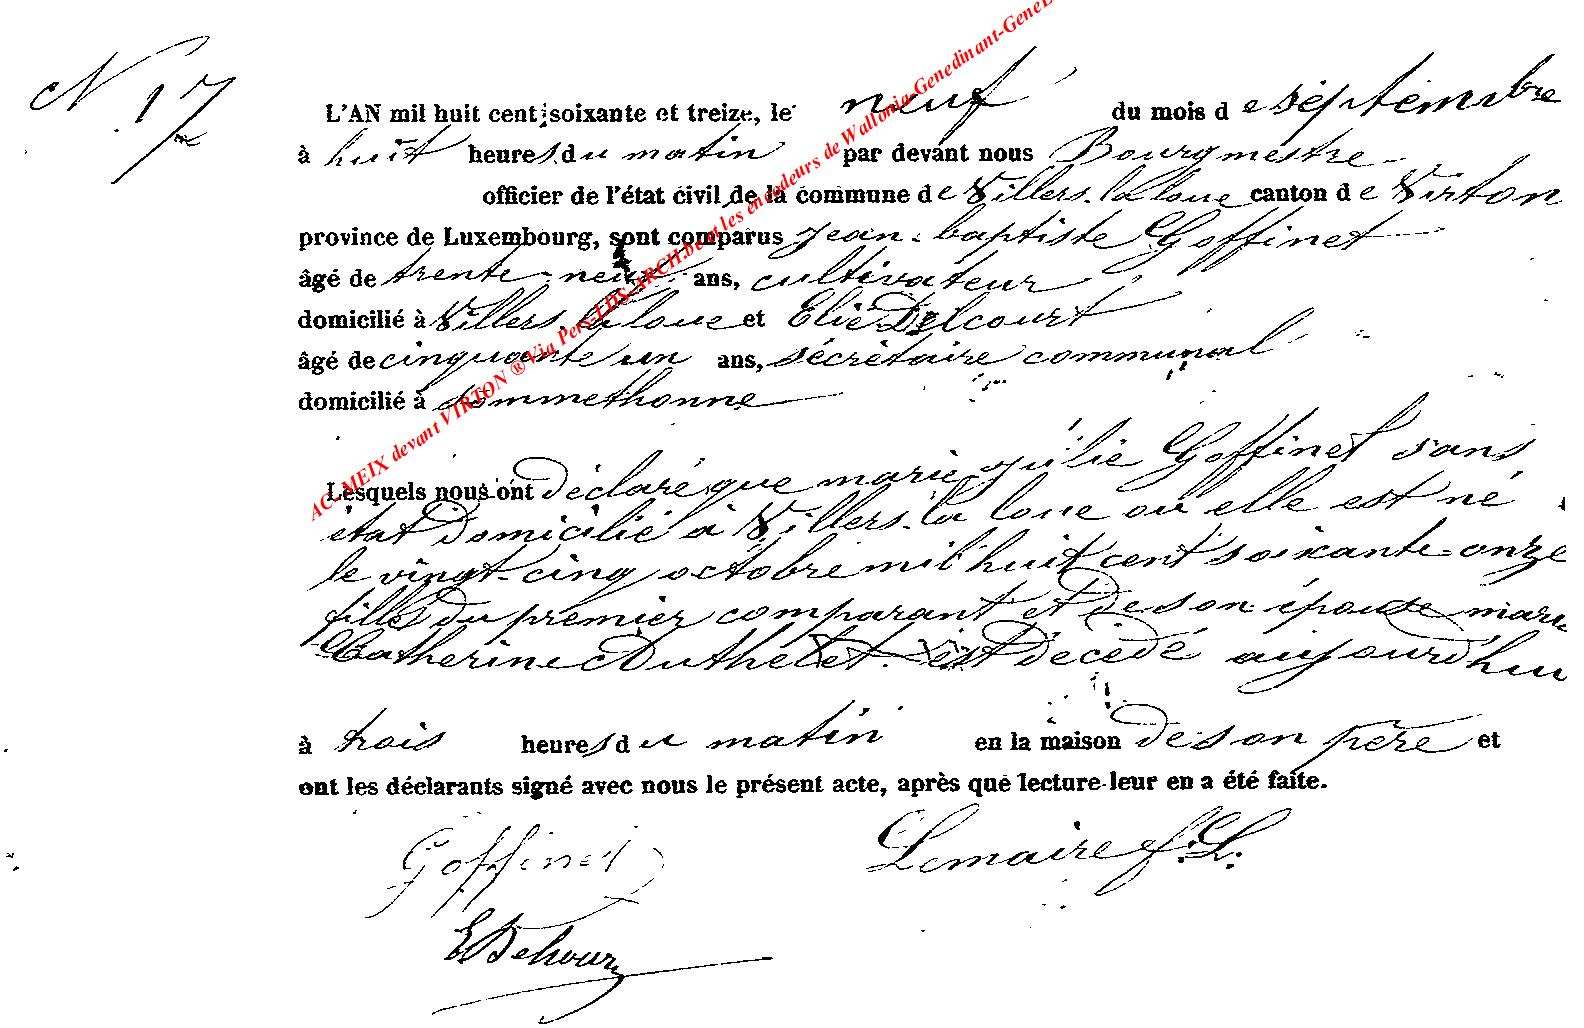 N 17
L'AN mil huit cent soixante et treize, le neuf du mois de séptémbre
à huit heures du matin par devant nous Bourgmestre
officier de l'état civil de la commune de Villers-la loue canton de Virton
province de Luxembourg, sont comparus jean-baptiste Goffinet
âgé de trente-neuf ans, cultivateur
domicilié à Villers-la loue et Elie Delcourt
âgé de cinquante un ans, sécrétaire communal
domicilié à Sommethonne
Lesquels nous ont déclaré que marie julie Goffinet sans
état domicilié à Villers-la loue où elle est né
le vingt-cinq octobre mil huit cent soixante-onze
fille du premier comparant et de son épouse marie
Catherine Duthelet est décédé aujourd'hui
à trois heures du matin en la maison de son père et
ont les déclarants signé avec nous le présent acte, après que lecture leur en a été faite.
Goffinet
Lemaire f. L.
AC MEIX devant VIRTON ® Via Pers-LUX-ARCH.be et les encodeurs de Wallonia-Genedinant-GeneL